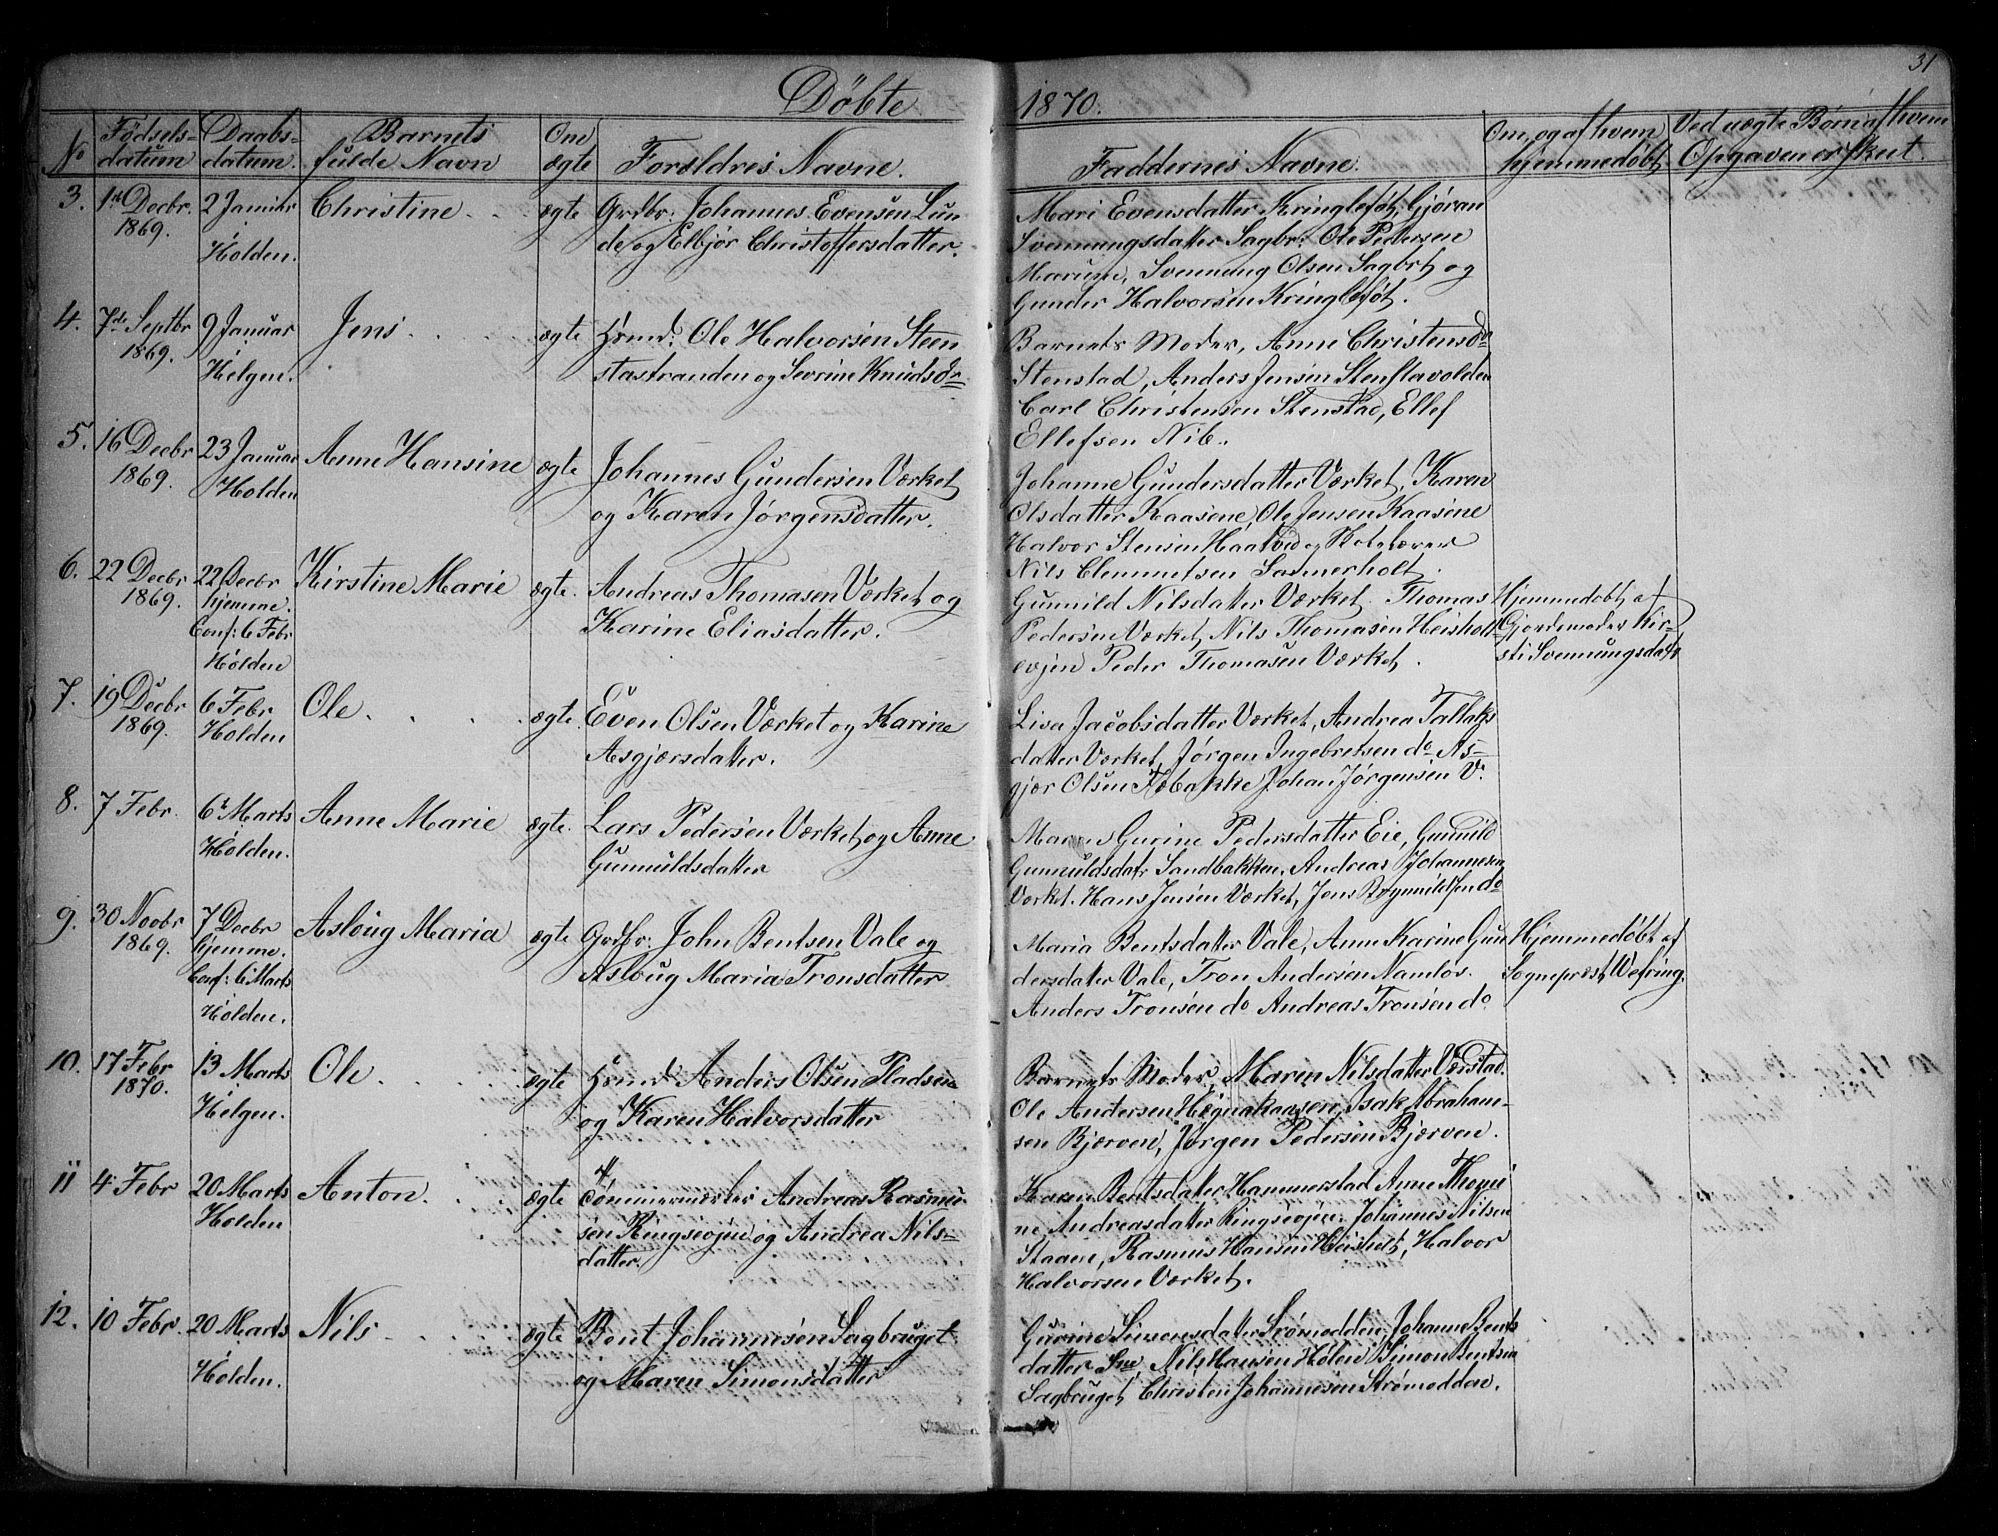 31
Døbte 1870.
No
Fødsels-
datum
Daabs-
datum.
Barnets
fulde Navn
Om
ægte
Forældres Navne.
Faddernes Navne.
Om, og af hvem
hjemmedøbt,
Ved uægte Børn af hvem
Opgaven er skeet.
3.
1ste Decbr.
1869.
2 Januar
Holden.
Christine
ægte
Grdbr. Johannes Evensen Lun-
de og Elbjør Christoffersdatter.
Mari Evensdatter Kringlefót, Gjøran
Svennungsdatter Sagbr. Ole Pedersen
Marum, Svennung Olsen Sagbrt, og
Gunder Halvorsen Kringlefót.
4.
7de Septbr
1869.
9 Januar
Helgen.
Jens
ægte
Hrmd. Ole Halvorsen Steen
stastranden og Sevrine Knudsdr
Barnets Moder, Anne Christensdr
Stenstad, Anders Jensen Stenstavolden
Carl Christensen Stenstad, Ellef
Ellefsen Nib.
5.
16 Decbr
1869.
23 Januar
Holden
Anne Hansine
ægte
Johannes Gundersen Værket
og Karen Jørgensdatter.
Johanne Gundersdatter Værket, Karen
Olsdatter Kaasene, Ole Jensen Kaasene
Halvor Stensen Haatved og
Nils Clemmetsen Sannerholt.
6.
22 Decbr
1869.
22 Decbr
hjemme.
Conf: 6 Febr
Holden
Kirstine Marie
ægte.
Andreas Thomasen Værket og
Karine Eliasdatter.
Gunnild Nilsdatter Værket. Thomas
Pedersen Værket, Nils Thomasen Heisholt
evjen Peder Thomasen Værket.
Hjemmedøbt af
Gjordemoder Kir-
sti Svennungsdatr
7.
19 Decbr
1869.
6 Febr
Holden
Ole
ægte.
Even Olsen Værket og Karine
Asgjærsdatter.
Lisa Jacobsdatter Værket, Andrea Tallaks
datter Værket, Jørgen Ingebretsen do, As-
gjær Olsen Flóbakke, Johan Jørgensen V.
8.
7 Febr.
6te Marts
Holden.
Anne Marie
ægte.
Lars Pedersen Værket og Anne
Gunnuldsdatter
Maren Gurine Pedersdatter Eie, Gunnild
Gunnuldsdatr Sandbakken, Andreas Johannesen
Værket. Hans Jensen Værket, Jens Rognuldsen do
9.
30 Novbr
1869.
7 Decbr
hjemme.
Conf: 6 Marts
Holden.
Asloug Maria
ægte
Grdbr. John Bentsen Vale og
Asloug Maria Tronsdatter
Maria Bentsdatter Vale, Anne Karine Gun
dersdatter Vale, Tron Andersen Namløs.
Anders Tronsen do Andreas Tronsen do
Hjemmedøbt af
Sognepræst Wefring.
10.
17 Febr
1870.
13 Marts
Helgen.
Ole
ægte
Hrmd Anders Olsen Pladsen
og Karen Halvorsdatter
Barnets Moder, Maren Nilsdatter Værstad.
Ole Andersen Høgnakaasen, Isak Abraham-
sen Bjerven, Jørgen Pedersen Bjerven.
11
4 Febr
20 Marts
Holden
Anton.
ægte
Tømmermester Andreas Rasmu-
sen Ringsevjen og Andrea Nils-
datter.
Karen Bentsdatter Hammerstad Anne Thomi
ne Andreasdatter Ringsevjen. Johannes Nilsen
Staane, Rasmus Hansen Heisholt, Halvor
Halvorsen Værket.
12.
10 Febr.
20 Marts
Holden.
Nils
ægte
Bent Johannesen Sagbruget
og Maren Simonsdatter
Gurine Simonsdatter Strømodden, Johanne Bents
datter Sne, Nils Hansen Holen, Simon Bentsen
Sagbruget, Christen Johannesen Strømodden.